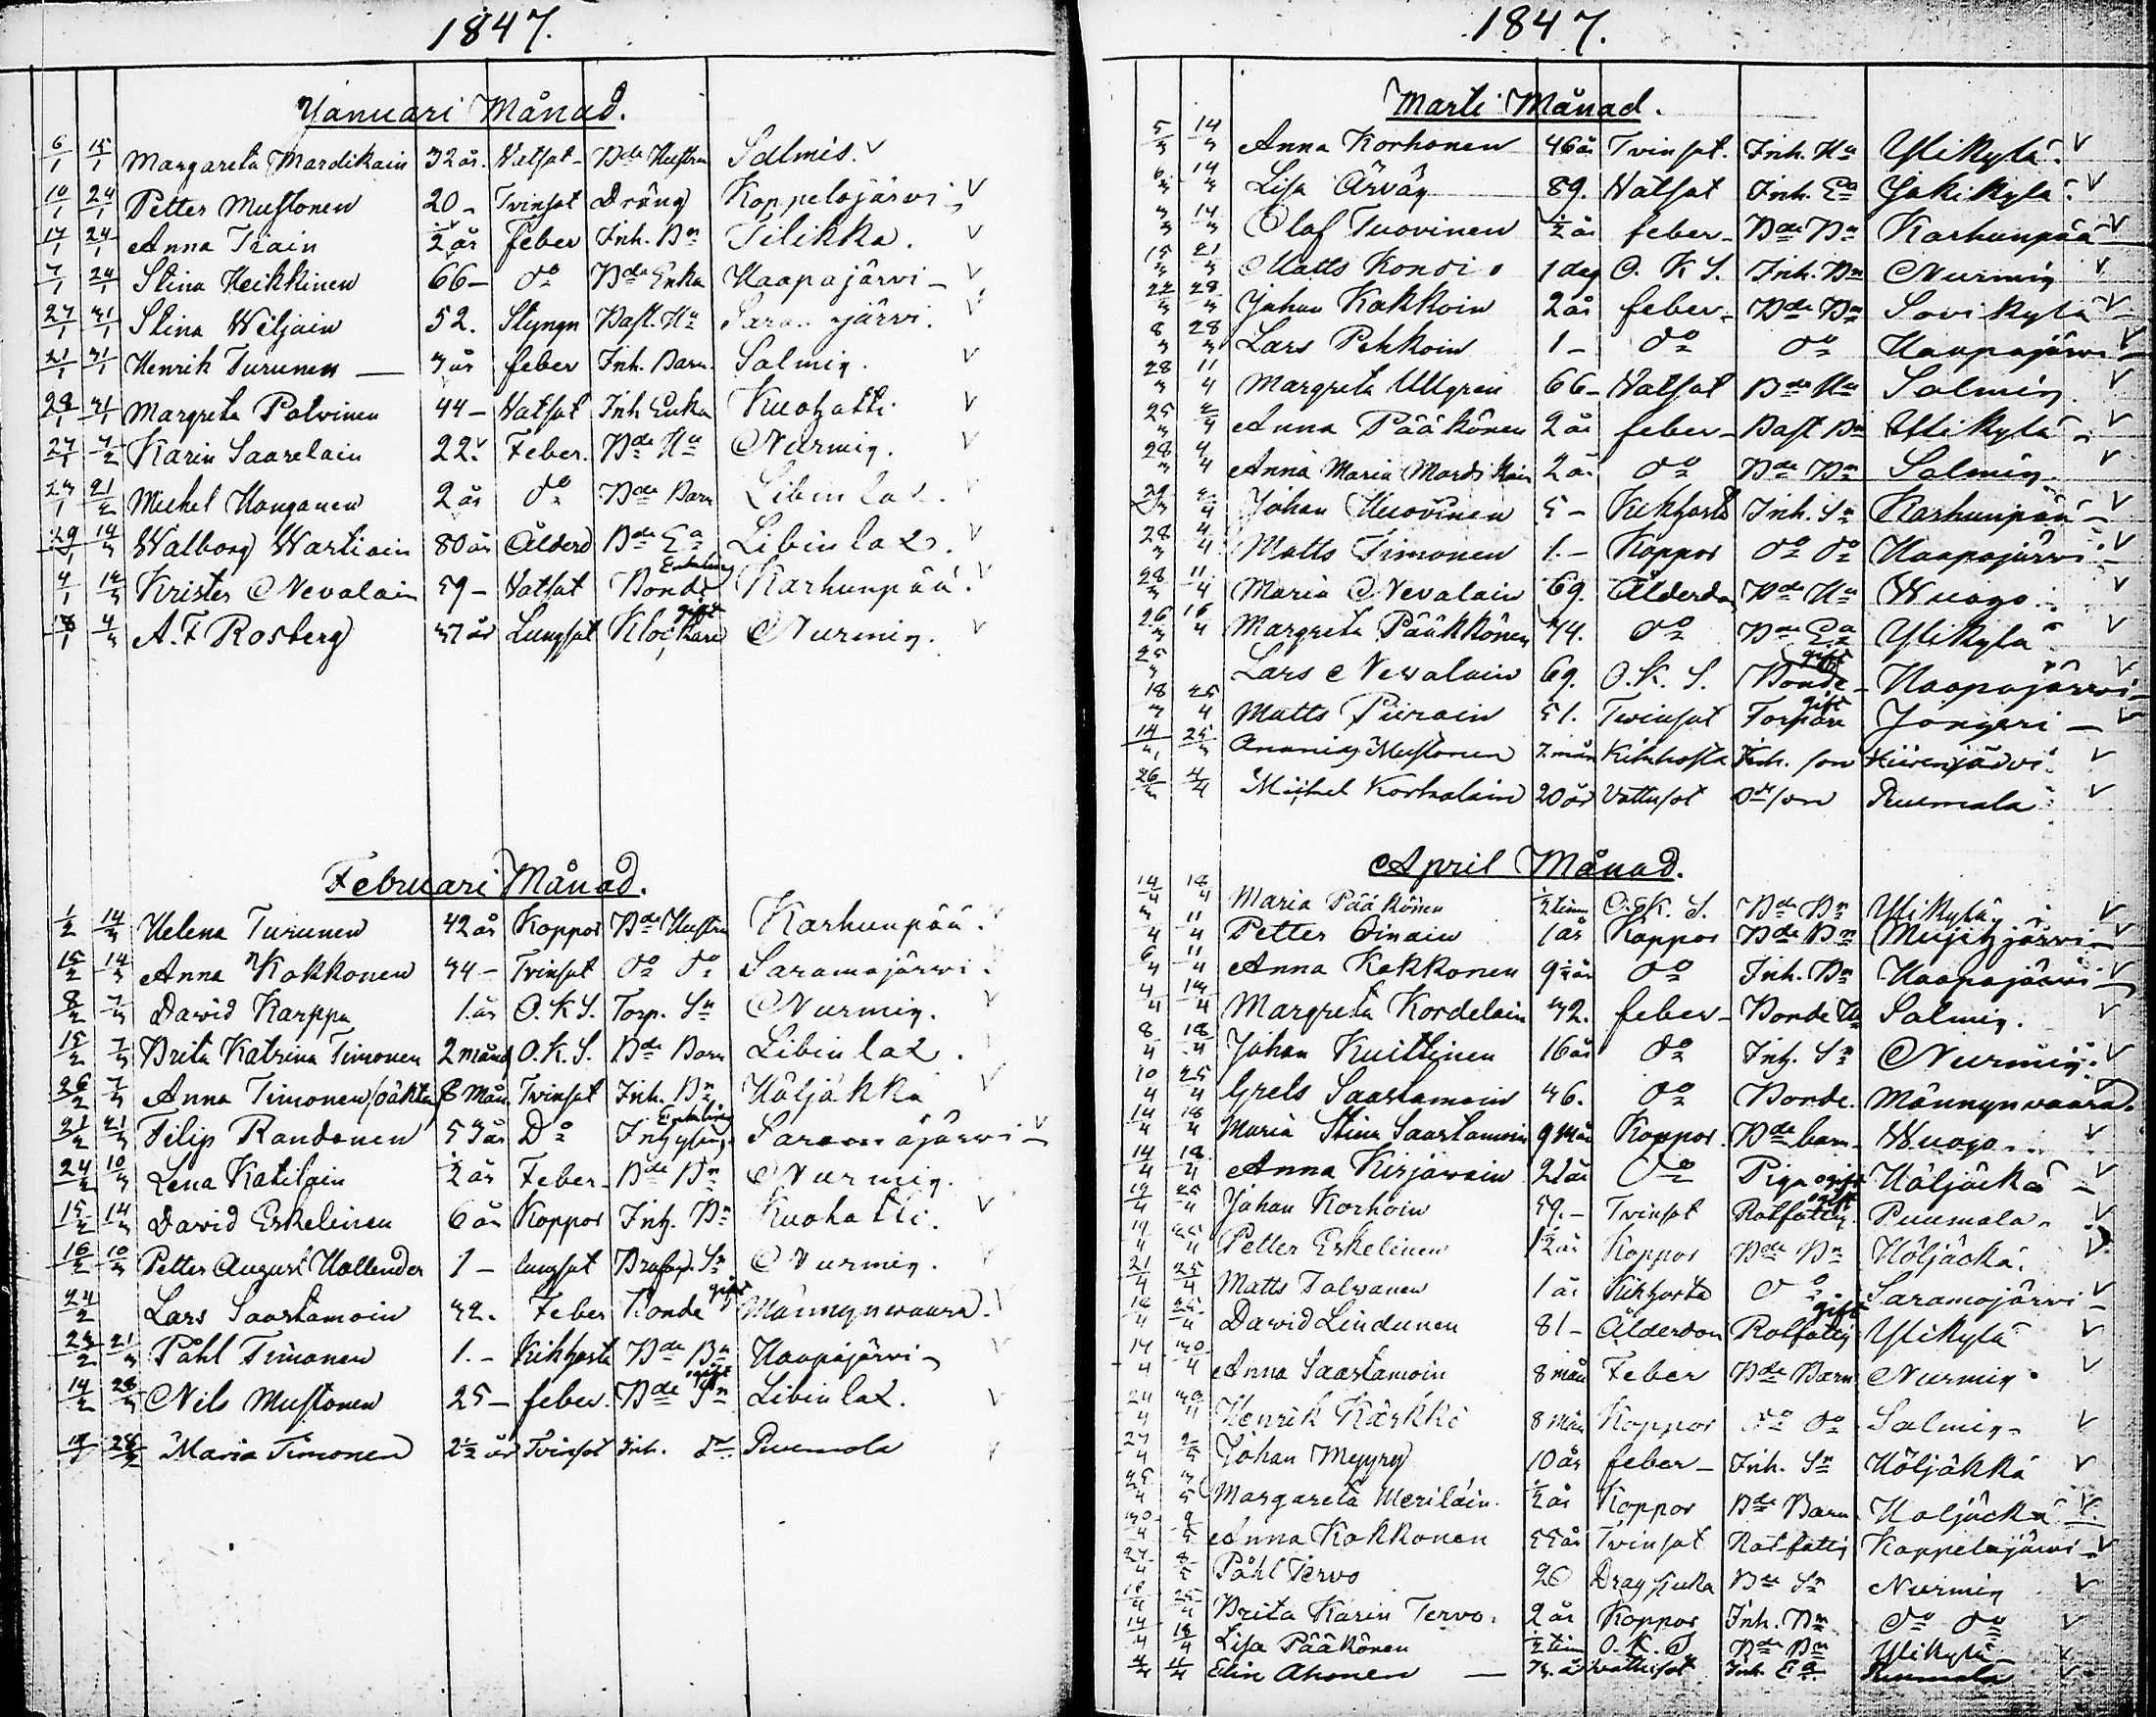 1847.
Januari Månad.
6/1 15/1 Margareta Mardikain 32 år. Vatsot Bde Hustru Salmis. v
10/1 24/1 Petter Mustonen 20 - Tvinsot Dräng Koppelojärvi v
17/1 24/1 Anna Triain ½ år feber Inh. Bn Tilikka. v
7/1 24/1 Stina Heikkinen 66 - do Bde Enka Haapajärvi - v
27/1 31/1 Stina Wiljain 52. Styngn Bast. Hu järvi. v
21/1 31/1 Henrik Turunen — 3 år feber Inh. Barn Salmis. v
28/1 31/1 Margreta Polvinen 44 - Vatsot Inh Enka Kuohatti v
27/1 7/2 Karin Saarelain 22. Feber. Bde Hu Nurmis. v
21/2 Michel Hanganen 2 år do Bde Barn Libinlax. v
29/1 14/3 Walborg Wartiain 80 år Ålderd Bde Ea Libinlax. v
4/1 14/3 Krister Nevalain 59 - Vatsot Bonde Enkling Karhunpää. v
18/1 4/3 A. F Rosberg 37 år Lungsot Klockare gift Nurmis. v
Februari Månad.
1/2 14/3 Helena Turunen 42 år Koppor Bde Hustru Karhunpää. v
15/2 14/3 Anna Kokkonen 34 - Tvinsot do do Saramojärvi.
8/2 7/3 David Karppa 1 år O. K S. Torp. Sn Nurmis. v
15/2 7/3 Brita Katrina Timonen 2 månd O. K. S. Bde Barn Libinlax.
26/2 7/3 Anna Timonen /oäkta/ 8 Mån Tvinsot Inh. Bn Höljäkkä v
21/2 21/3 Filip Randanen 53 år Do Inhysing Enkling Saramojärvi - v
24/2 10/3 Lena Katilain ½ år Feber - Bde Bn Nurmis.
15/2 14/3 David Eskelinen 6 år Koppor Inh. Bn Kuohatti. v
16/2 10/3 Petter August Hallender 1 - lungsot Sn Nurmis.
24/2 Lars Saastamoin 32. Feber Bonde gift Männynwaara. v
23/2 21/3 Påhl Timonen 1. - Kikhosta Bde Bn Haapajärvi - v
14/2 28/3 Nils Mustonen 25 - feber. Bde Sn ogift Libinlax. v
28/3 Maria Timonen 2½ år Tvinsot Inh. Dr Puumala v
1847.
Marti Månad.
5/3 14/3 Anna Korhonen 46 år Tvinsot. Inh. Hu Ylikylä. v
6/3 14/3 Lisa Ärväs 89. Vatsot Inh. Ea Jokikylä. v
3/3 14/3 Olof Tuovinen ½ år feber - Bde Bn Karhunpää v
15/3 21/3 Matts Kondi 1 dag O. K S. Inh. Bn Nurmis v
22/3 28/3 Johan Kakkoin 2 år feber - Bde Bn Savikylä v
8/3 28/3 Lars Pehkoin 1 - do do Haapajärvi - v
28/3 11/4 Margreta Ullgren 66 - Vatsot Bde Hu Salmis. v
25/3 2/4 Anna Pääkönen 2 år feber - Bast Bn Ylikylä - v
28/3 4/4 Anna Maria Mardikain 2 år do Bde Bn Salmis v
Johan Huovinen 5 - Kikhosta Inh. Sn Karhunpää - v
28/3 4/4 Matts Timonen 1. - Koppor do do Haapajärvi v
28/3 11/4 Maria Nevalain 69. Ålderdom Bde Hu Wuogo v
26/3 16/4 Margreta Pääkkönen 74. do Bde Ea Ylikylä v
25/3 Lars Nevalain 69. O. K. S. Bonde gift Haapajärvi v
18/3 25/4 Matts Piirain 51. Tvinsot Torpare gift Jongeri - v
14/3 25/3 Ananias Mustonen 7 mån Kikhosta Inh. son Hiirenjärvi v
26/3 4/4 Michel Korhalain 20 år Vattusot Bde son Puumala v
April Månad.
14/4 18/4 Maria Pääkönen ½ tim O. K. S. Bde Bn Ylikylä v
3/4 11/4 Petter Oinain 1 år Koppor Bde Bn Mujejärvi v
6/4 11/4 Anna Kokkonen 9½ år do Inh. Bn Haapajärvi v
4/4 Margreta Kordelain 32. feber - Bonde Hu Salmis. v
8/4 18/4 Johan Kuittinen 16 år do Inh. Sn Nurmis. v
10/4 25/4 Grels Saastamoin 46. do Bonde. Männynvaara.
14/4 18/4 Maria Stina Saastamoin 9 Mån Koppor. Bde barn Wuogo v
14/4 18/4 Anna Kirjavain 21 år do Piga ogift Höljäckä - v
19/4 25/4 Johan Korhoin 59. - Tvinsot Rotfattig. ogift Puumala. v
19/4 25/4 Petter Eskelinen 1½ år Koppor Bde Bn Höljäckä. v
21/4 25/4 Matts Talvanen 1 år Kikhosta do Saramojärvi v
18/4 25/4 David Lindunen 81 - Ålderdom Rotfattig gift Ylikylä v
14/4 30/4 Anna Saastamoin 8 mån Feber Bde Barn Nurmis. v
24/4 Henrik Kärkki 8 Mån Koppor do do Salmis. v
27/4 2/5 Johan Meyyry 10 år feber - Inh. Sn Höljäkkä v
25/4 Margareta Meriläin. ½ år Koppor Bde Barn Holjäckä v
30/4 9/5 Anna Kokkonen 55 år Tvinsot Rotfattig Koppelojärvi - v
27/4 8/5 Påhl Tervo 26 Dragsjuka Bde Sn Nurmis v
18/4 25/4 Brita Karin Tervo. 2 år Koppor Inh. Bn do do v
14/4 18/4 Lisa Pääkönen ½ tim O. K. S Bde Bn Ylikylä v
4/4 11/4 Elin Ahonen — år Vattusot Inh. Ea Puumala v